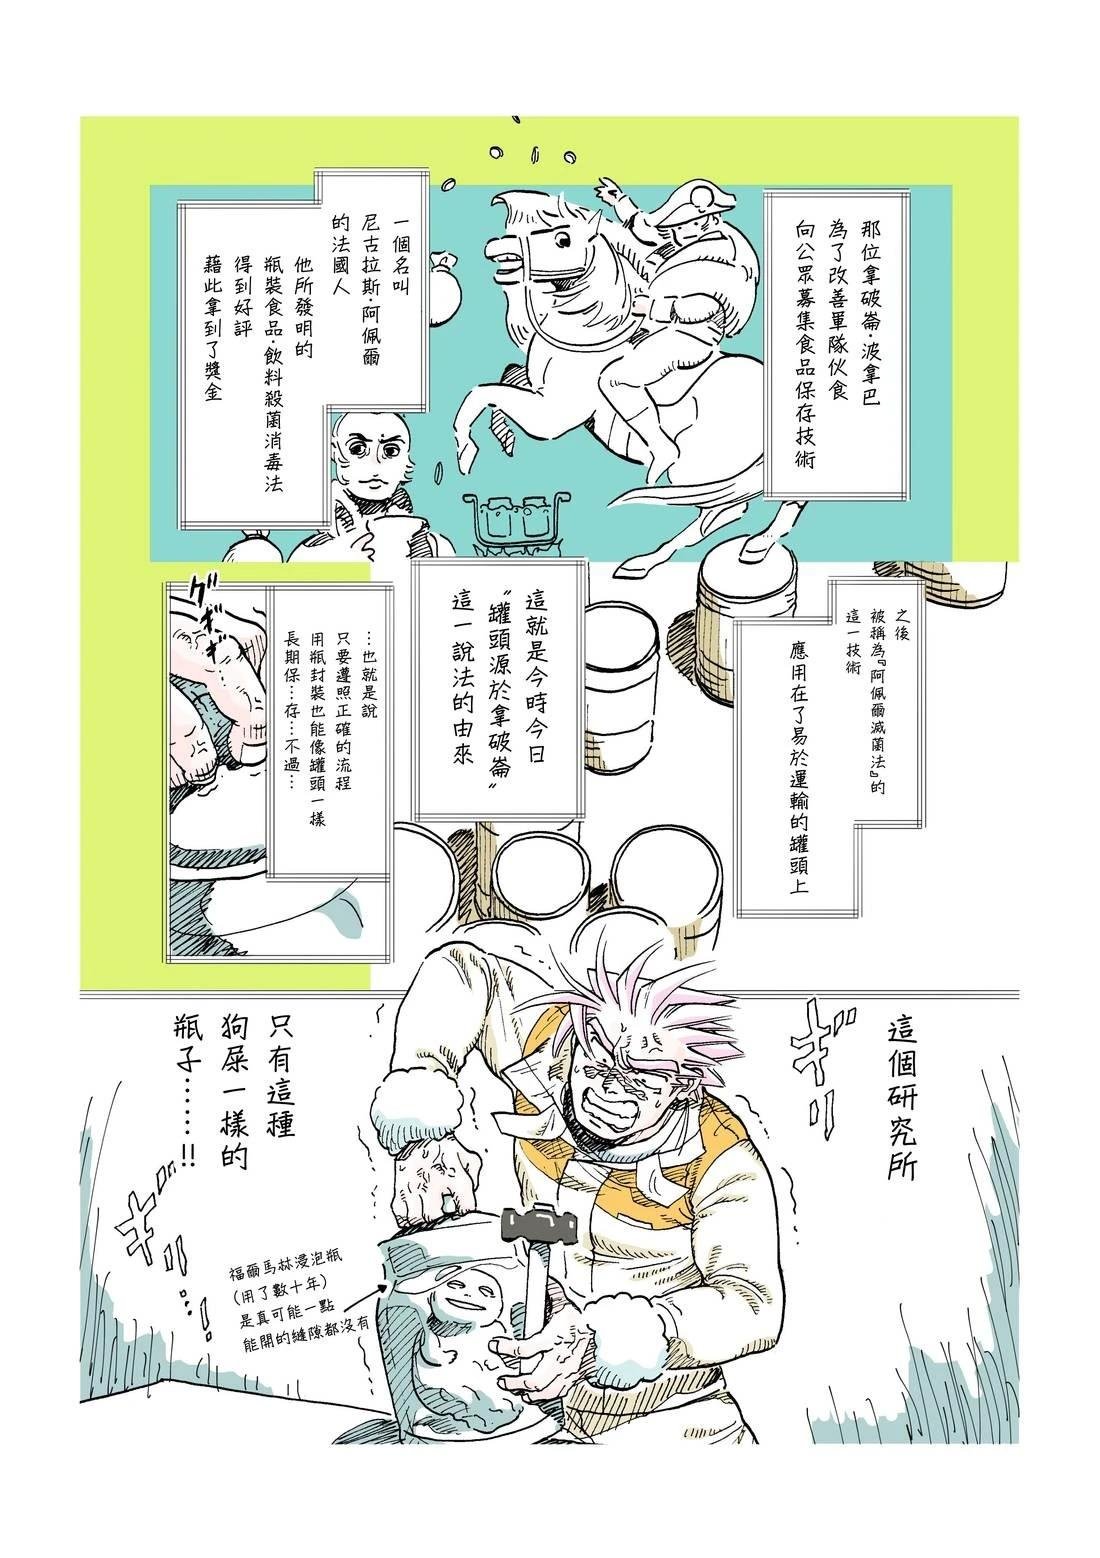 那位拿破崙·波拿巴
為了改善軍隊伙食
向公眾募集食品保存技術
一個名叫
尼古拉斯·阿佩爾
的法國人
他所發明的
瓶裝食品·飲料殺菌消毒法
得到好評
藉此拿到了獎金
之後
被稱為『阿佩爾滅菌法』的
這一技術
應用在了易於運輸的罐頭上
這就是今時今日
“罐頭源於拿破崙”
這一說法的由來
…也就是說
只要遵照正確的流程
用瓶封裝也能像罐頭一樣
長期保…存…不過…
グ
ギギ
這個研究所
ギリ
只有這種
狗屎一樣的
瓶子……!!
ギリ…!
福爾馬林浸泡瓶
(用了數十年)
是真可能一點
能開的縫隙都沒有